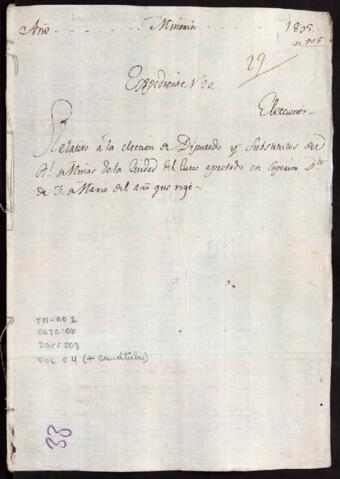 Año Mineria 1808
n. 208
29
Expediente N. 20.
Elecciones
Relativo à la eleccion de Diputado y Substitutos del
Rl. de Minas de la Ciudad del Cuzco aprobado en Superior
de 3. de Marzo del año que rige
TM-AD 2
DOC: 208
FOL 04 (+ caratula)
33